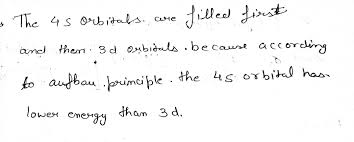 The 4s orbitals are filled first
and then 3d orbitals. because according
to aufbau principle. the 4s orbital has
lower energy than 3d.